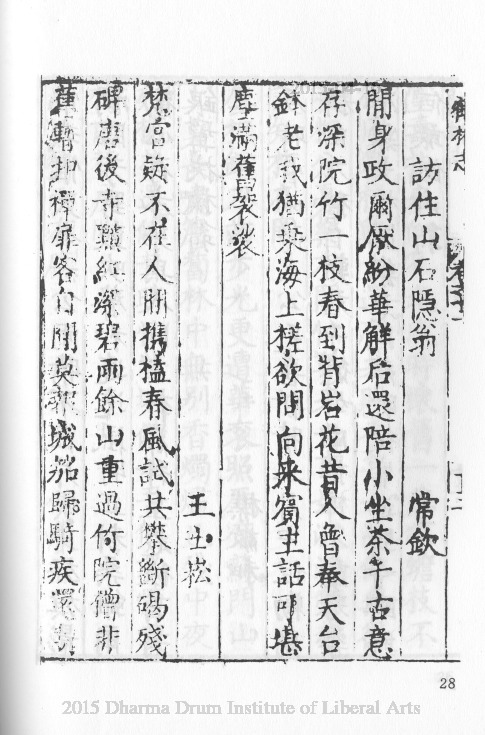 訪住山石隱翁
常欽
閒身政爾厭紛華解后還陪小坐茶千古意
存深院竹一枝春到背岩花昔人曾奉天台
鉢老我猶乘海上槎欲問向來賓主話可堪
塵滿舊袈裟
王士崧
梵宮疑不在人間携榼春風試共攀斷碣殘
碑唐後寺點紅深碧雨餘山重過竹院僧非
舊暫扣禪扉客自閒莫報城船歸騎疾
28
2015 Dharma Drum Institute of Liberal Arts